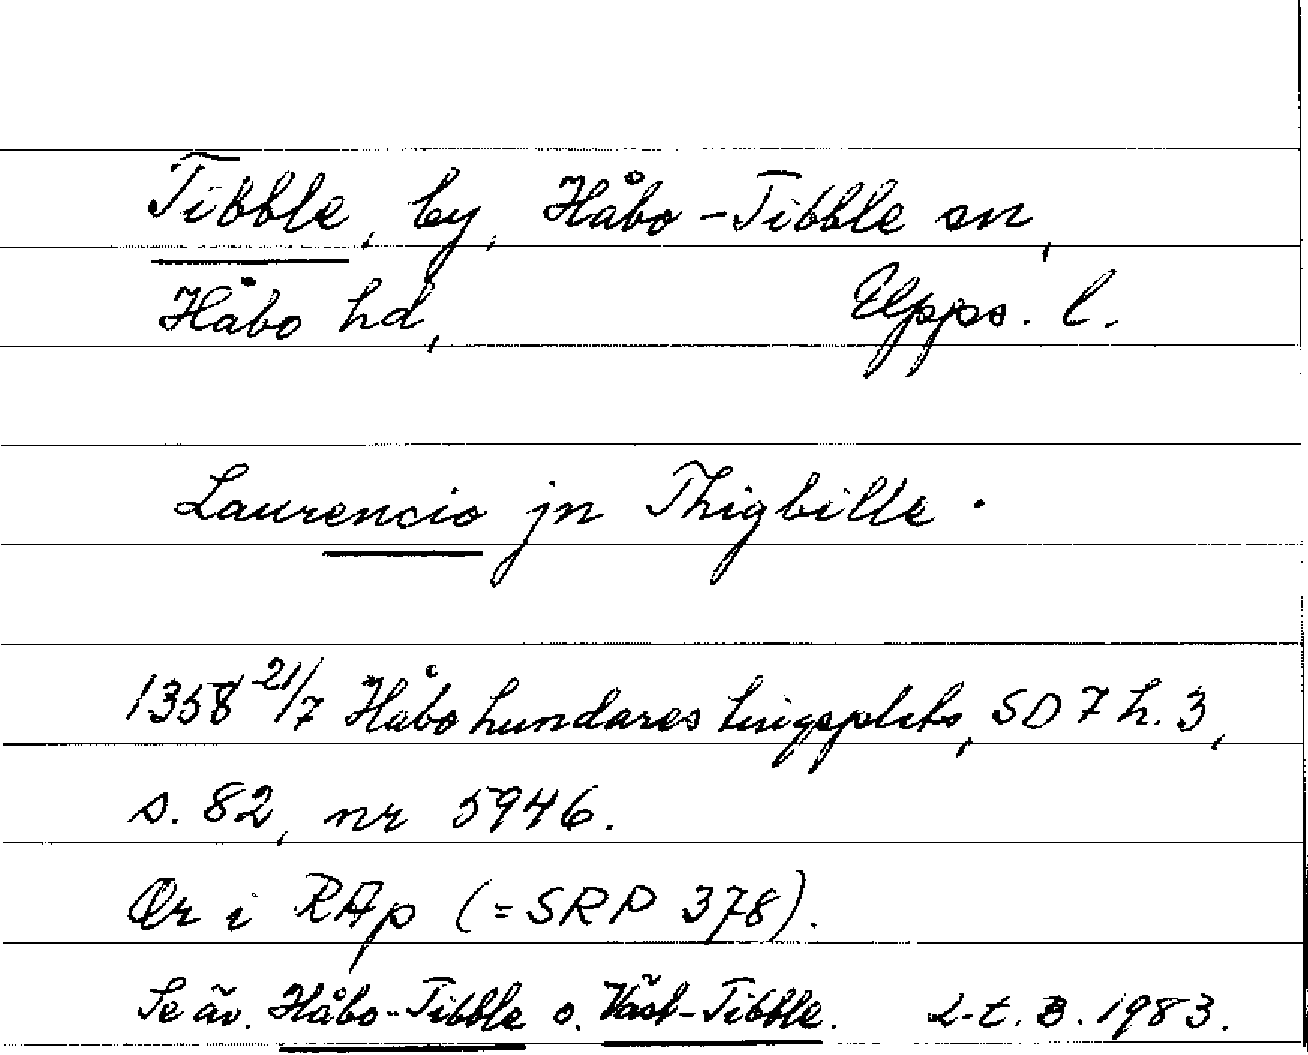 Tibble, by, Håbo-Tibble sn,
Håbo hd, Upps. l.
Laurencio jn Thigbille.
1358 21/7 Håbo hundares tingsplats, SD 7 h. 3,
s. 82, nr 5946.
Or i RAp (=SRP 378).
Se äv. Håbo-Tibble o. Väst-Tibble. L-t. B. 1983.